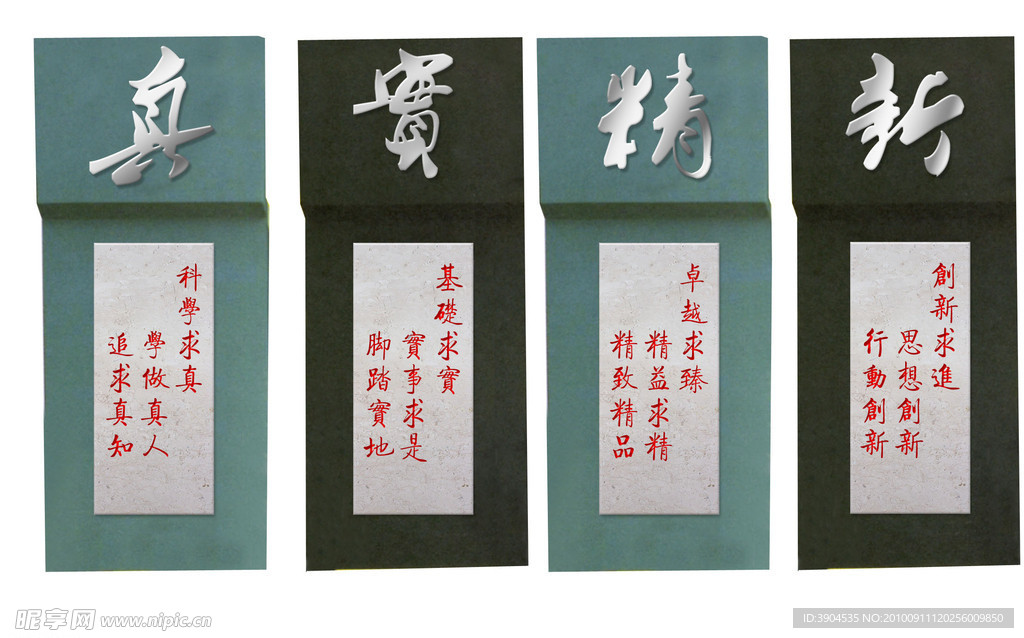 真
科學求真
學做真人
追求真知
實
基礎求實
實事求是
脚踏實地
精
卓越求臻
精益求精
精致精品
新
創新求進
思想創新
行動創新
昵享网 www.nipic.cn
ID:3904535 NO:20100911120256009850